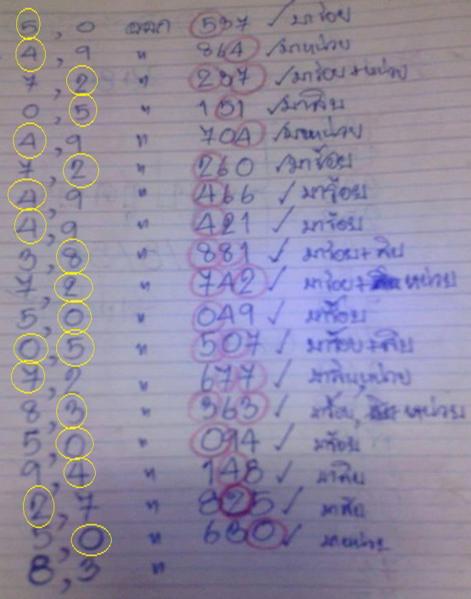 5, 0 ออก 597 ✓ มาร้อย
4, 9 " 864 ✓ มาหน่วย
7, 2 " 287 ✓ มาร้อย+หน่วย
0, 5 " 151 ✓ มาสิบ
4, 9 " 704 ✓ มาหน่วย
7, 2 " 260 ✓ มาร้อย
4, 9 " 466 ✓ มาร้อย
4, 9 " 421 ✓ มาร้อย
3, 8 " 881 ✓ มาร้อย+สิบ
7, 2 " 742 ✓ มาร้อย+ หน่วย
5, 0 " 049 ✓ มาร้อย
0, 5 " 507 ✓ มาร้อย+สิบ
7, 2 " 677 ✓ มาสิบหน่วย
8, 3 " 363 ✓ มาร้อย, หน่วย
5, 0 " 094 ✓ มาร้อย
9, 4 " 148 ✓ มาสิบ
2, 7 " 825 ✓ มาสิบ
5, 0 " 630 ✓ มาหน่วย
8, 3 "